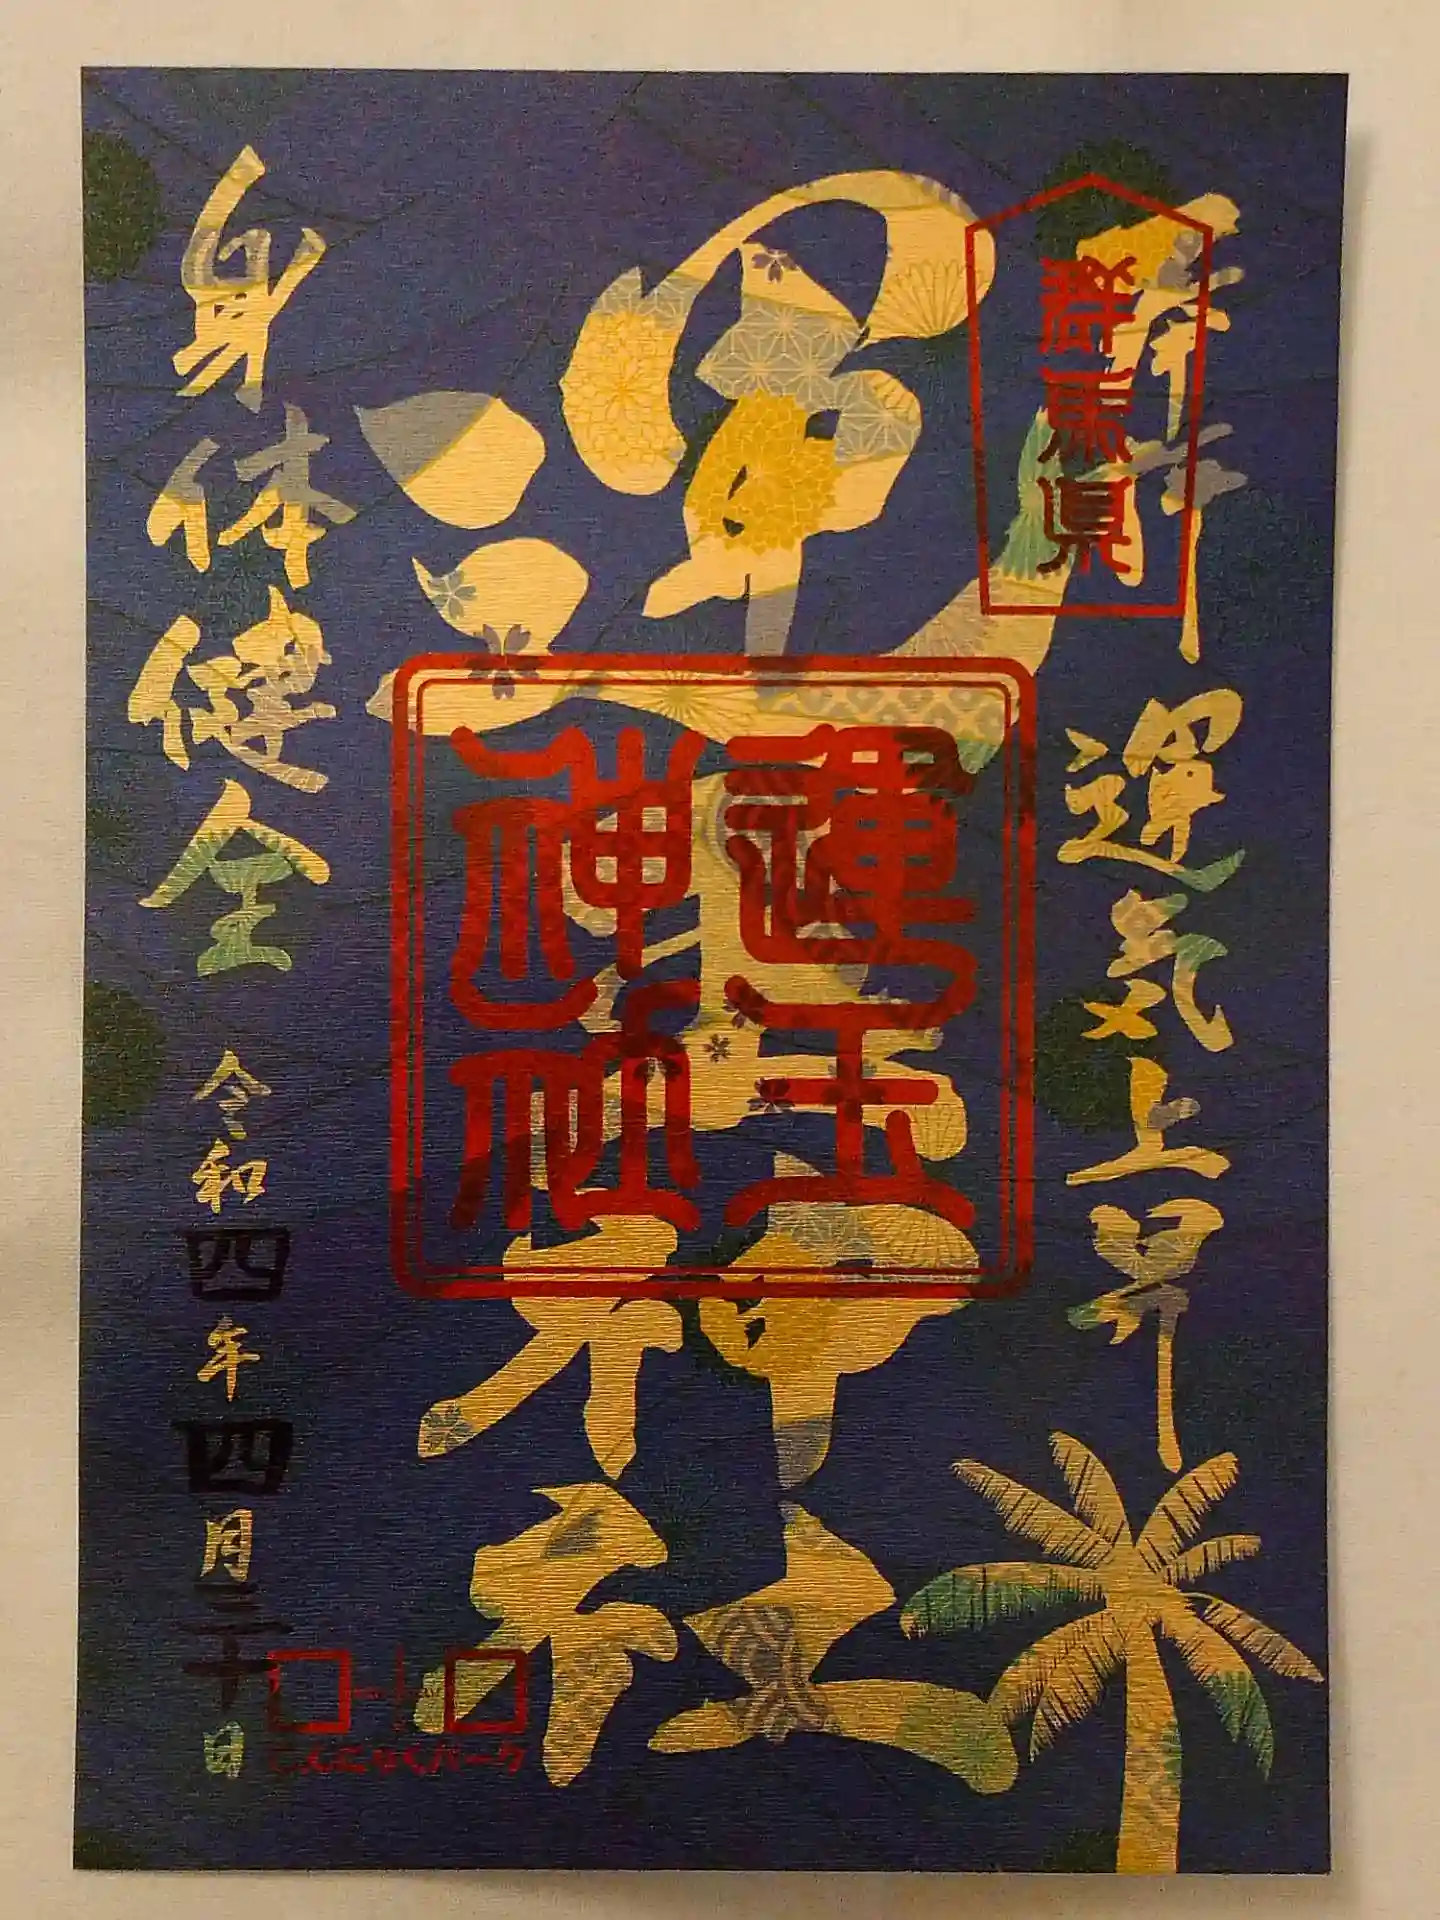 奉拝
群馬県
運気上昇
運玉神社
運玉神社
身体健全
令和四年四月三十日
こんにゃくパーク